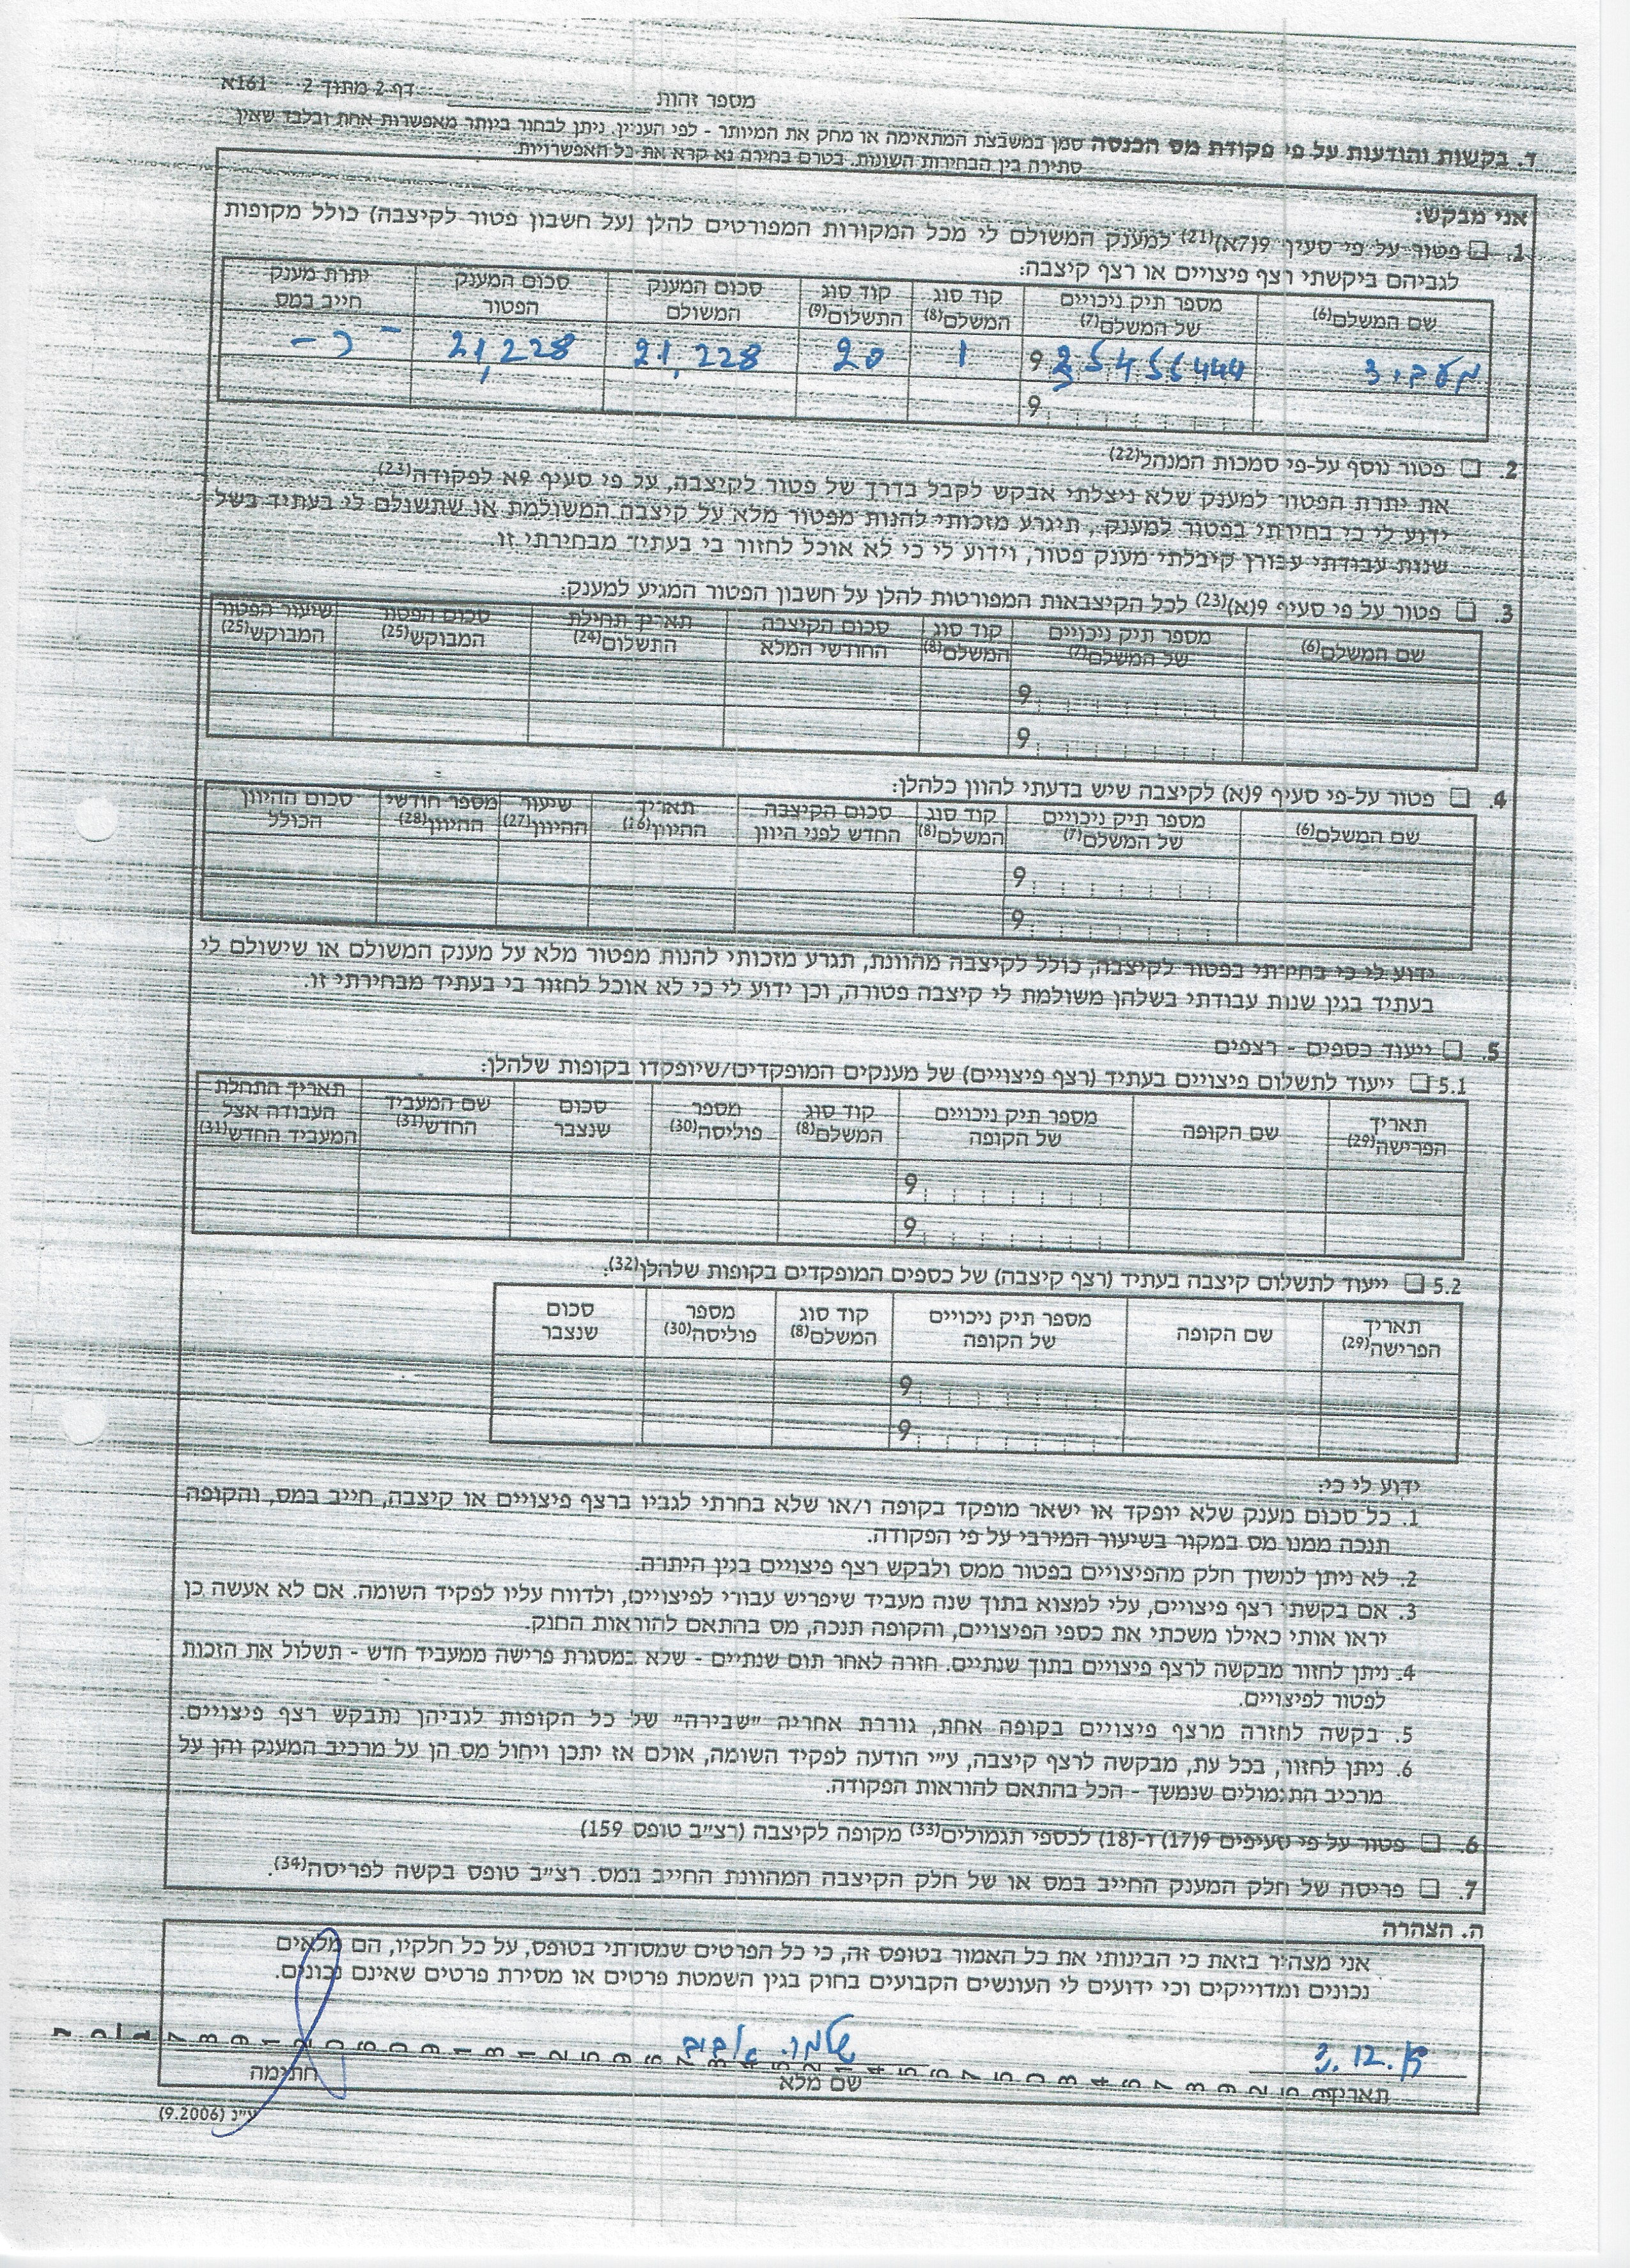 מספר זהות דף 2 מתוך 2 161א
ד. בקשות והודעות על פי פקודת מס הכנסה סמן במשבצת המתאימה או מחק את המיותר - לפי העניין. ניתן לבחור ביותר מאפשרות אחת ובלבד שאין
סתירה בין הבחירות השונות. בטרם בחירה נא קרא את כל האפשרויות.
אני מבקש:
1. ☐ פטור על פי סעיף 9(7א)(21) למענק המשולם לי מכל המקורות המפורטים להלן (על חשבון פטור לקיצבה) כולל מקופות
לגביהם ביקשתי רצף פיצויים או רצף קיצבה:
שם המשלם(6) מספר תיק ניכויים של המשלם(7) קוד סוג המשלם(8) קוד סוג התשלום(9) סכום המענק המשולם סכום המענק הפטור יתרת מענק חייב במס
9 1 20 21,228 21,228
9
2. ☐ פטור נוסף על-פי סמכות המנהל(22)
את יתרת הפטור למענק שלא ניצלתי אבקש לקבל בדרך של פטור לקיצבה, על פי סעיף 9א לפקודה(23).
ידוע לי כי בחירתי בפטור למענק, תיגרע מזכותי להנות מפטור מלא על קיצבה המשולמת או שתשולם לי בעתיד בשל
שנות עבודתי עבורן קיבלתי מענק פטור, וידוע לי כי לא אוכל לחזור בי בעתיד מבחירתי זו.
3. ☐ פטור על פי סעיף 9(א)(23) לכל הקיצבאות המפורטות להלן על חשבון הפטור המגיע למענק:
שם המשלם(6) מספר תיק ניכויים של המשלם(7) קוד סוג המשלם(8) סכום הקיצבה החודשי המלא תאריך תחילת התשלום(24) סכום הפטור המבוקש(25) שיעור הפטור המבוקש(25)
9
9
4. ☐ פטור על-פי סעיף 9(א) לקיצבה שיש בדעתי להוון כלהלן:
שם המשלם(6) מספר תיק ניכויים של המשלם(7) קוד סוג המשלם(8) סכום הקיצבה החדש לפני היוון תאריך ההיוון(26) שיעור ההיוון(27) מספר חודשי ההיוון(28) סכום ההיוון הכולל
9
9
ידוע לי כי בחירתי בפטור לקיצבה, כולל לקיצבה מהוונת, תגרע מזכותי להנות מפטור מלא על מענק המשולם או שישולם לי
בעתיד בגין שנות עבודתי בשלהן משולמת לי קיצבה פטורה, וכן ידוע לי כי לא אוכל לחזור בי בעתיד מבחירתי זו.
5. ☐ ייעוד כספים - רצפים
5.1 ☐ ייעוד לתשלום פיצויים בעתיד (רצף פיצויים) של מענקים המופקדים/שיופקדו בקופות שלהלן:
תאריך הפרישה(29) שם הקופה מספר תיק ניכויים של הקופה קוד סוג המשלם(8) מספר פוליסה(30) סכום שנצבר שם המעביד החדש(31) תאריך התחלת העבודה אצל המעביד החדש(31)
9
9
5.2 ☐ ייעוד לתשלום קיצבה בעתיד (רצף קיצבה) של כספים המופקדים בקופות שלהלן(32).
תאריך הפרישה(29) שם הקופה מספר תיק ניכויים של הקופה קוד סוג המשלם(8) מספר פוליסה(30) סכום שנצבר
9
9
ידוע לי כי:
1. כל סכום מענק שלא יופקד או ישאר מופקד בקופה ו/או שלא בחרתי לגביו ברצף פיצויים או קיצבה, חייב במס, והקופה
תנכה ממנו מס במקור בשיעור המירבי על פי הפקודה.
2. לא ניתן למשוך חלק מהפיצויים בפטור ממס ולבקש רצף פיצויים בגין היתרה.
3. אם בקשתי רצף פיצויים, עלי למצוא בתוך שנה מעביד שיפריש עבורי לפיצויים, ולדווח עליו לפקיד השומה. אם לא אעשה כן
יראו אותי כאילו משכתי את כספי הפיצויים, והקופה תנכה, מס בהתאם להוראות החוק.
4. ניתן לחזור מבקשה לרצף פיצויים בתוך שנתיים. חזרה לאחר תום שנתיים - שלא במסגרת פרישה ממעביד חדש - תשלול את הזכות
לפטור לפיצויים.
5. בקשה לחזרה מרצף פיצויים בקופה אחת, גוררת אחריה "שבירה" של כל הקופות לגביהן נתבקש רצף פיצויים.
6. ניתן לחזור, בכל עת, מבקשה לרצף קיצבה, ע"י הודעה לפקיד השומה, אולם אז יתכן ויחול מס הן על מרכיב המענק והן על
מרכיב התגמולים שנמשך - הכל בהתאם להוראות הפקודה.
6. ☐ פטור על פי סעיפים 9(17) ו-(18) לכספי תגמולים(33) מקופה לקיצבה (רצ"ב טופס 159)
7. ☐ פריסה של חלק המענק החייב במס או של חלק הקיצבה המהוונת החייב במס. רצ"ב טופס בקשה לפריסה(34).
ה. הצהרה
אני מצהיר בזאת כי הבינותי את כל האמור בטופס זה, כי כל הפרטים שמסרתי בטופס, על כל חלקיו, הם מלאים
נכונים ומדוייקים וכי ידועים לי העונשים הקבועים בחוק בגין השמטת פרטים או מסירת פרטים שאינם נכונים.
תאריך שם מלא חתימה
ע"נ (9.2006)